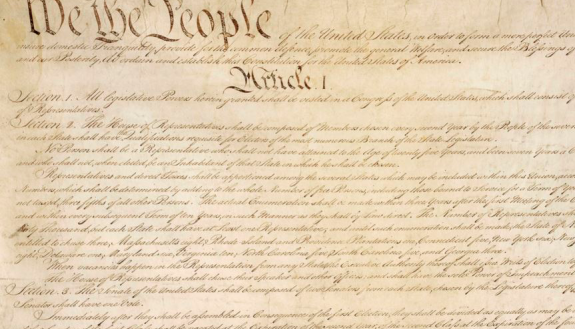 We the People of the United States, in Order to form a more perfect
insure domestic Tranquility, provide for the common defence, promote the general Welfare, and secure the Blessings of
and our Posterity, do ordain and establish this Constitution for the United States of America.
Article. I.
Section. 1. All legislative Powers herein granted shall be vested in a Congress of the United States, which shall consist of
of Representatives.
Section. 2. The House of Representatives shall be composed of Members chosen every second Year by the People of the
in each State shall have the Qualifications requisite for Electors of the most numerous Branch of the State Legislature.
No Person shall be a Representative who shall not have attained to the Age of twenty five Years, and been seven Years a
and who shall not, when elected, be an Inhabitant of that State in which he shall be chosen.
Representatives and direct Taxes shall be apportioned among the several States which may be included within this Union,
Numbers, which shall be determined by adding to the whole Number of free Persons, including those bound to Service for a Term of
not taxed, three fifths of all other Persons. The actual Enumeration shall be made within three Years after the first Meeting of the
and within every subsequent Term of ten Years, in such Manner as they shall by Law direct. The Number of Representatives
thirty Thousand, but each State shall have at Least one Representative; and until such enumeration shall be made, the State of
entitled to chuse three, Massachusetts eight, Rhode Island and Providence Plantations one, Connecticut five, New York six,
eight, Delaware one, Maryland six, Virginia ten, North Carolina five, South Carolina five, and Georgia three.
When vacancies happen in the Representation from any State, the Executive Authority thereof shall issue Writs of Election to
The House of Representatives shall chuse their Speaker and other Officers; and shall have the sole Power of Impeachment.
Section. 3. The Senate of the United States shall be composed of two Senators from each State, chosen by the Legislature thereof,
Senator shall have one Vote.
Immediately after they shall be assembled in Consequence of the first Election, they shall be divided as equally as may be